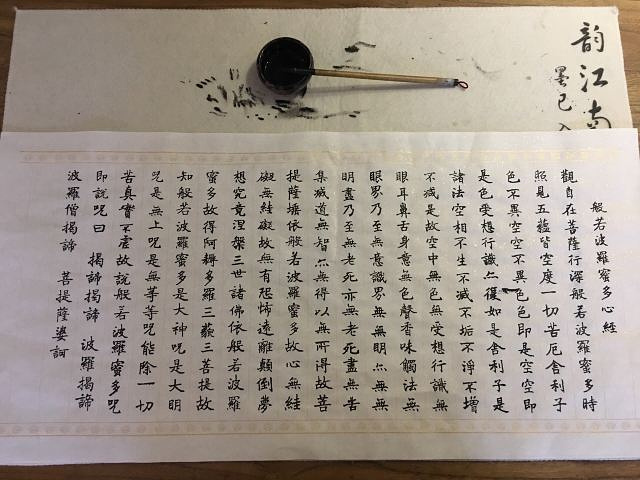 韵江南
墨已
般若波羅蜜多心經
觀自在菩薩行深般若波羅蜜多時
照見五蘊皆空度一切苦厄舍利子
色不異空空不異色色即是空空即
是色受想行識亦復如是舍利子是
諸法空相不生不滅不垢不淨不增
不減是故空中無色無受想行識無
眼耳鼻舌身意無色聲香味觸法無
眼界乃至無意識界無無明亦無無
明盡乃至無老死亦無老死盡無苦
集滅道無智亦無得以無所得故菩
提薩埵依般若波羅蜜多故心無絓
礙無絓礙故無有恐怖遠離顛倒夢
想究竟涅槃三世諸佛依般若波羅
蜜多故得阿耨多羅三藐三菩提故
知般若波羅蜜多是大神呪是大明
呪是無上呪是無等等呪能除一切
苦真實不虛故說般若波羅蜜多呪
即說呪曰 揭諦揭諦 波羅揭諦
波羅僧揭諦 菩提薩婆訶